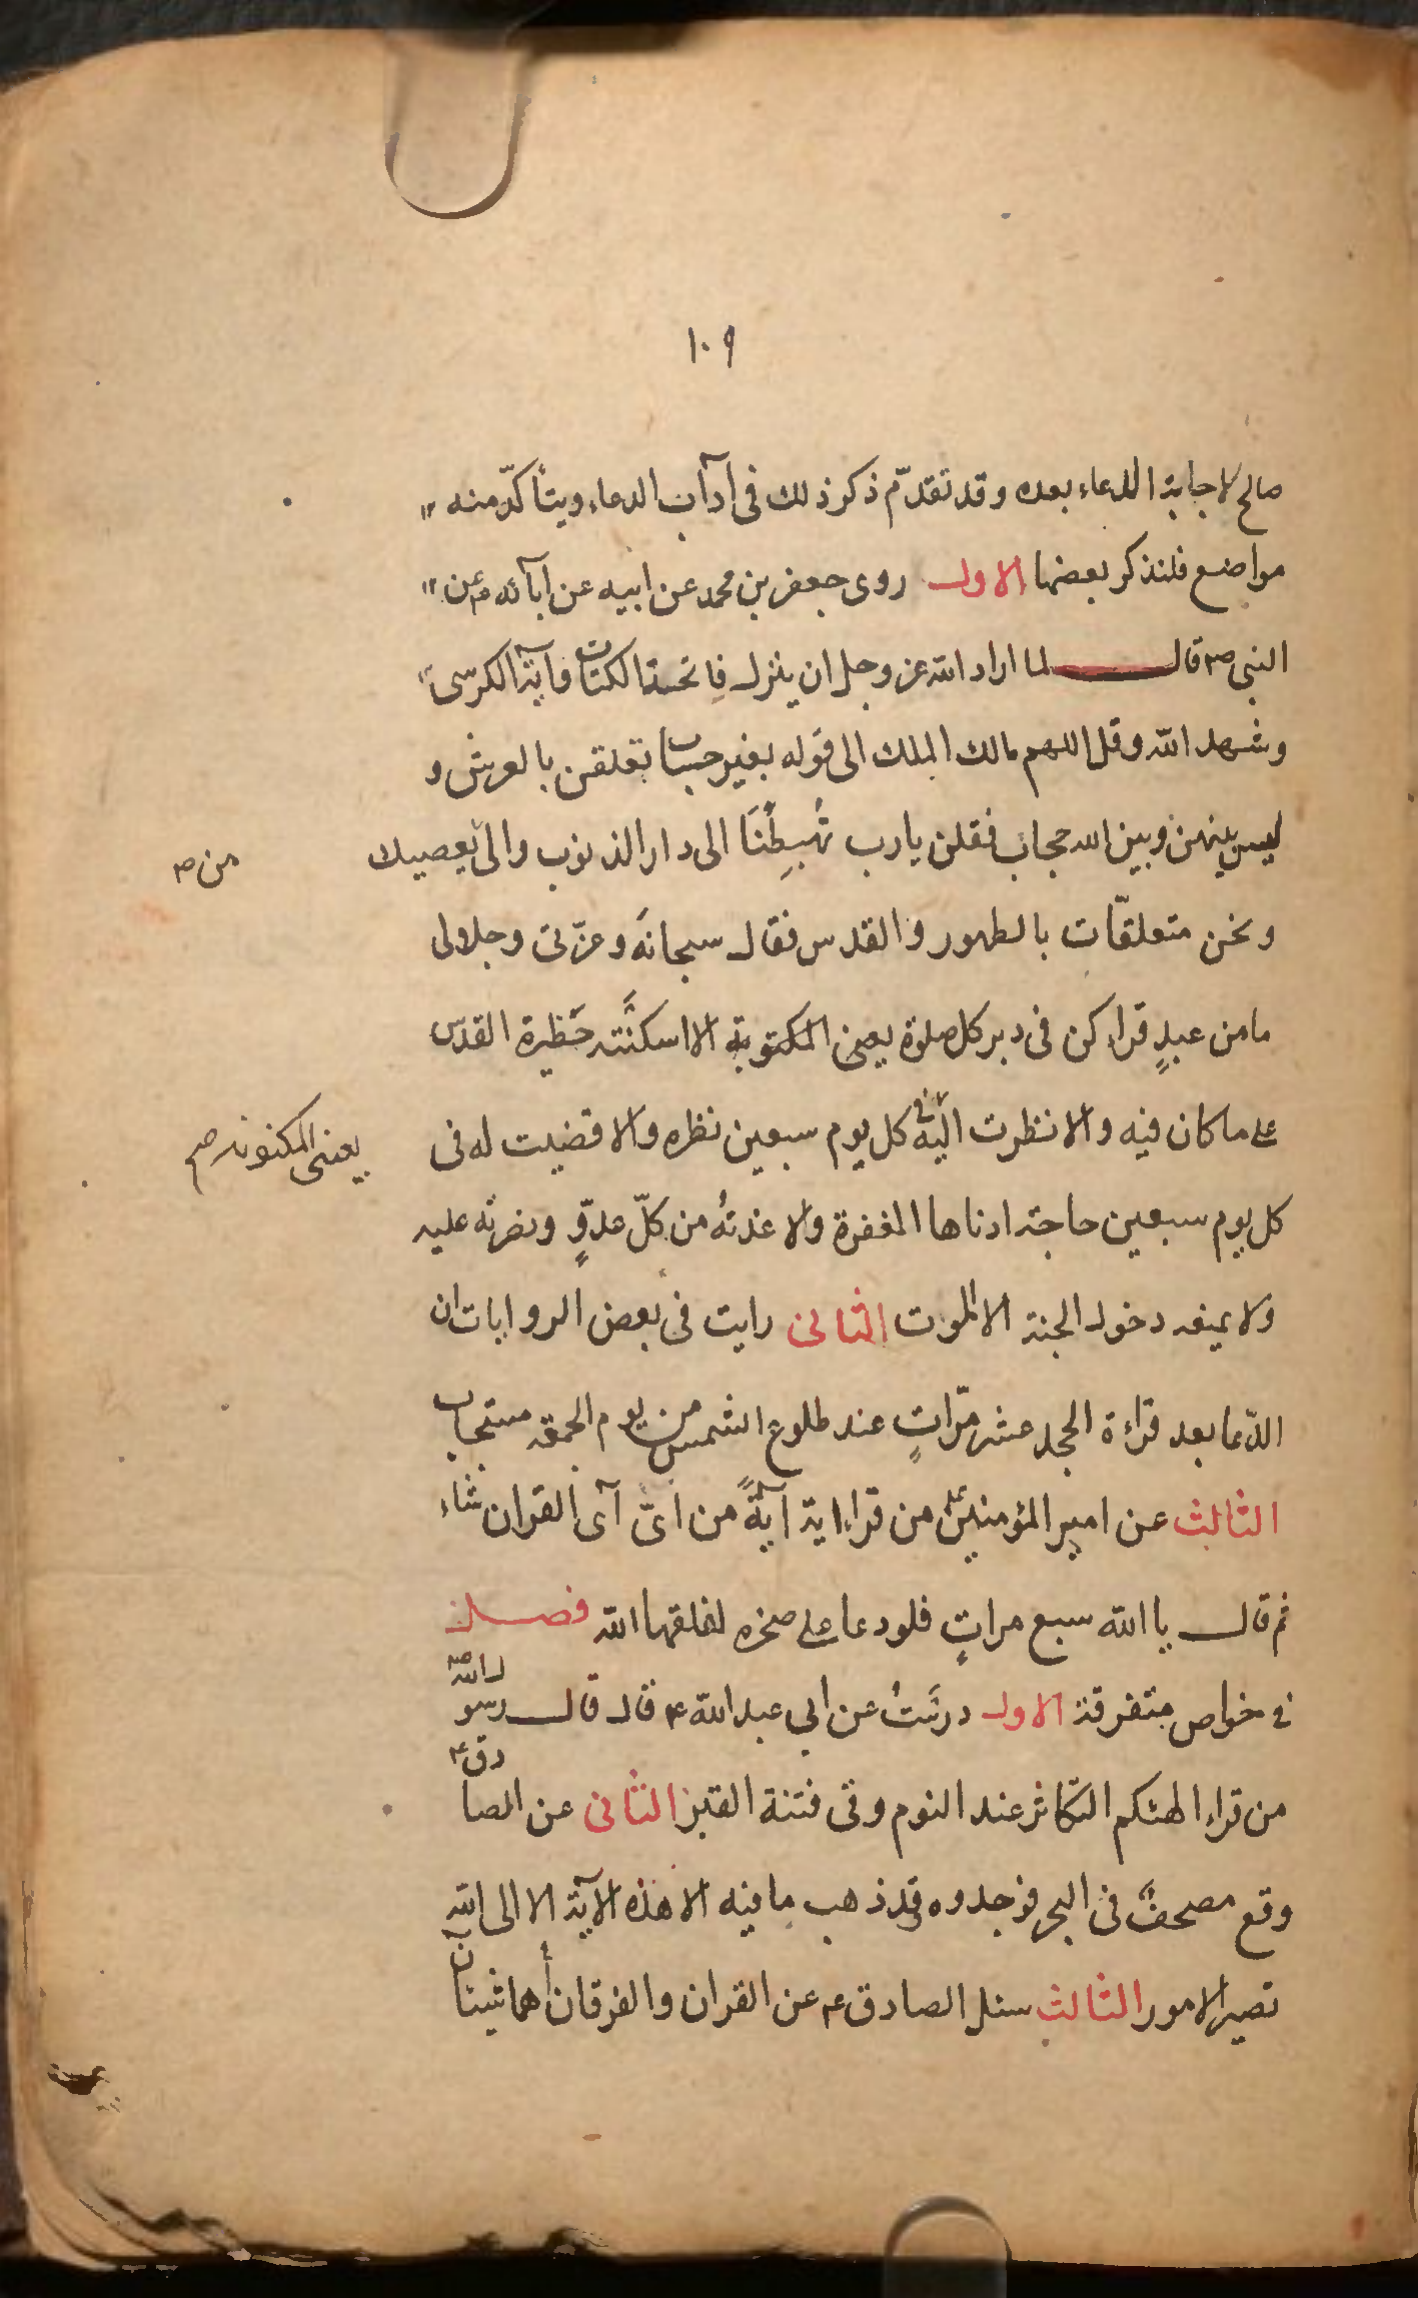 ١٠٩
صالح لاجابة الدعاء بعده وقد تقدّم ذكر ذلك فى اداب الدعاء ويتأكّد منه
مواضع فلنذكر بعضها الاول روى جعفر بن محمد عن ابيه عن ابآئه ع عن
النبى ص قال لما اراد الله عز وجل ان ينزل فاتحة الكتاب وآية الكرسى
وشهد الله وقل اللهم مالك الملك الى قوله بغير حساب تعلقن بالعرش و
ليس بينهن وبين الله حجاب فقلن يارب تُهبِطُنَا الى دار الذنوب والى يعصيك
من ص
ونحن متعلقّات بالطهور والقدس فقال سبحانه وعزّتى وجلالى
مامن عبدٍ قراءكن فى دبر كل صلوة يعنى المكتوبة الا اسكنَّته حَظيرة القدس
على ما كان فيه والا نظرت اليه فى كل يوم سبعين نظره والا قضيت له فى
يعنى المكنونه ص
كل يوم سبعين حاجة ادناها المغفرة والا عذتهُ من كلّ عدوٍّ ونصرته عليه
ولا يمنعه دخول الجنة الا الموت الثانى رايت فى بعض الروايات ان
الدّعا بعد قراءة الجحد عشر مرّاتٍ عند طلوع الشمس من يوم الجمعه مستجاب
الثالث عن امير المؤمنين ع من قراء اية آيةً من اىّ آى القران شاء
ثم قال يا الله سبع مراتٍ فلو دعا على صخره لفلقها الله فصل
فى خواص متفرقة الاول درسَتُ عن ابى عبد الله ع قال قال رسول الله ص
من قراء الهيكم التكاثر عند النوم وقى فتنة القبر الثانى عن الصادق ع
وقع مصحفٌ فى البحر فوجدوه قد ذهب ما فيه الا هذه الآية الا الى الله
تصير الامور الثالث سئل الصادق ع عن القران والفرقان أهما شيئان